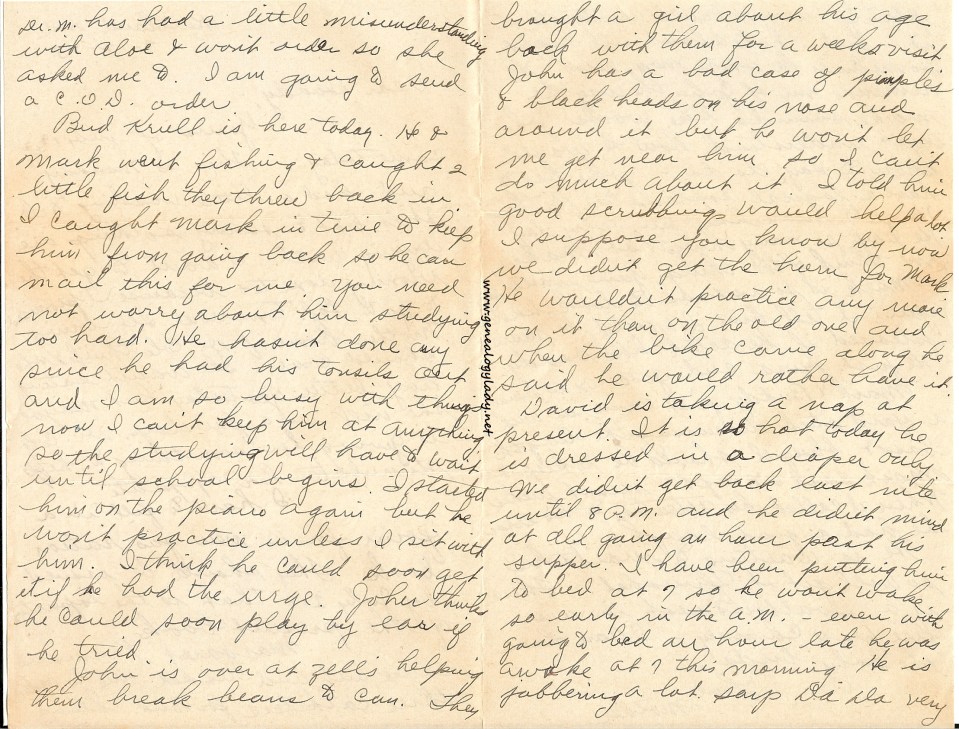 Dr. M. has had a little misunderstanding
with Aloe & won't order so she
asked me to. I am going to send
a C.O.D. order
Bud Kriell is here today. He &
Mark went fishing & caught 2
little fish they threw back in.
I caught Mark in time to keep
him from going back so he can
mail this for me. You need
not worry about him studying
too hard. He hasn't done any
since he had his tonsils out
and I am so busy with things
now I can't keep him at anything
so the studying will have to wait
until school begins. I started
him on the piano again but he
won't practice unless I sit with
him. I think he could soon get
it if he had the urge. John thinks
he could soon play by ear if
he tried.
John is over at Zell's helping
them break beans to can. They
brought a girl about his age
back with them for a weeks visit
John has a bad case of pimples
& black heads on his nose and
around it but he won't let
me get near him so I can't
do much about it. I told him
good scrubbings would help a lot
I suppose you know by now
we didn't get the horn for Mark
He wouldn't practice any more
on it than on the old one and
when the bike came along he
said he would rather have it.
David is taking a nap at
present. It is so hot today he
is dressed in a diaper only
We didn't get back last nite
until 8 P.M. and he didn't mind
at all going an hour past his
supper. I have been putting him
to bed at 7 so he won't wake
so early in the a.m. - even with
going to bed an hour late he was
awake at 7 this morning He is
jabbering a lot. says Da Da very
www.genealogylady.net